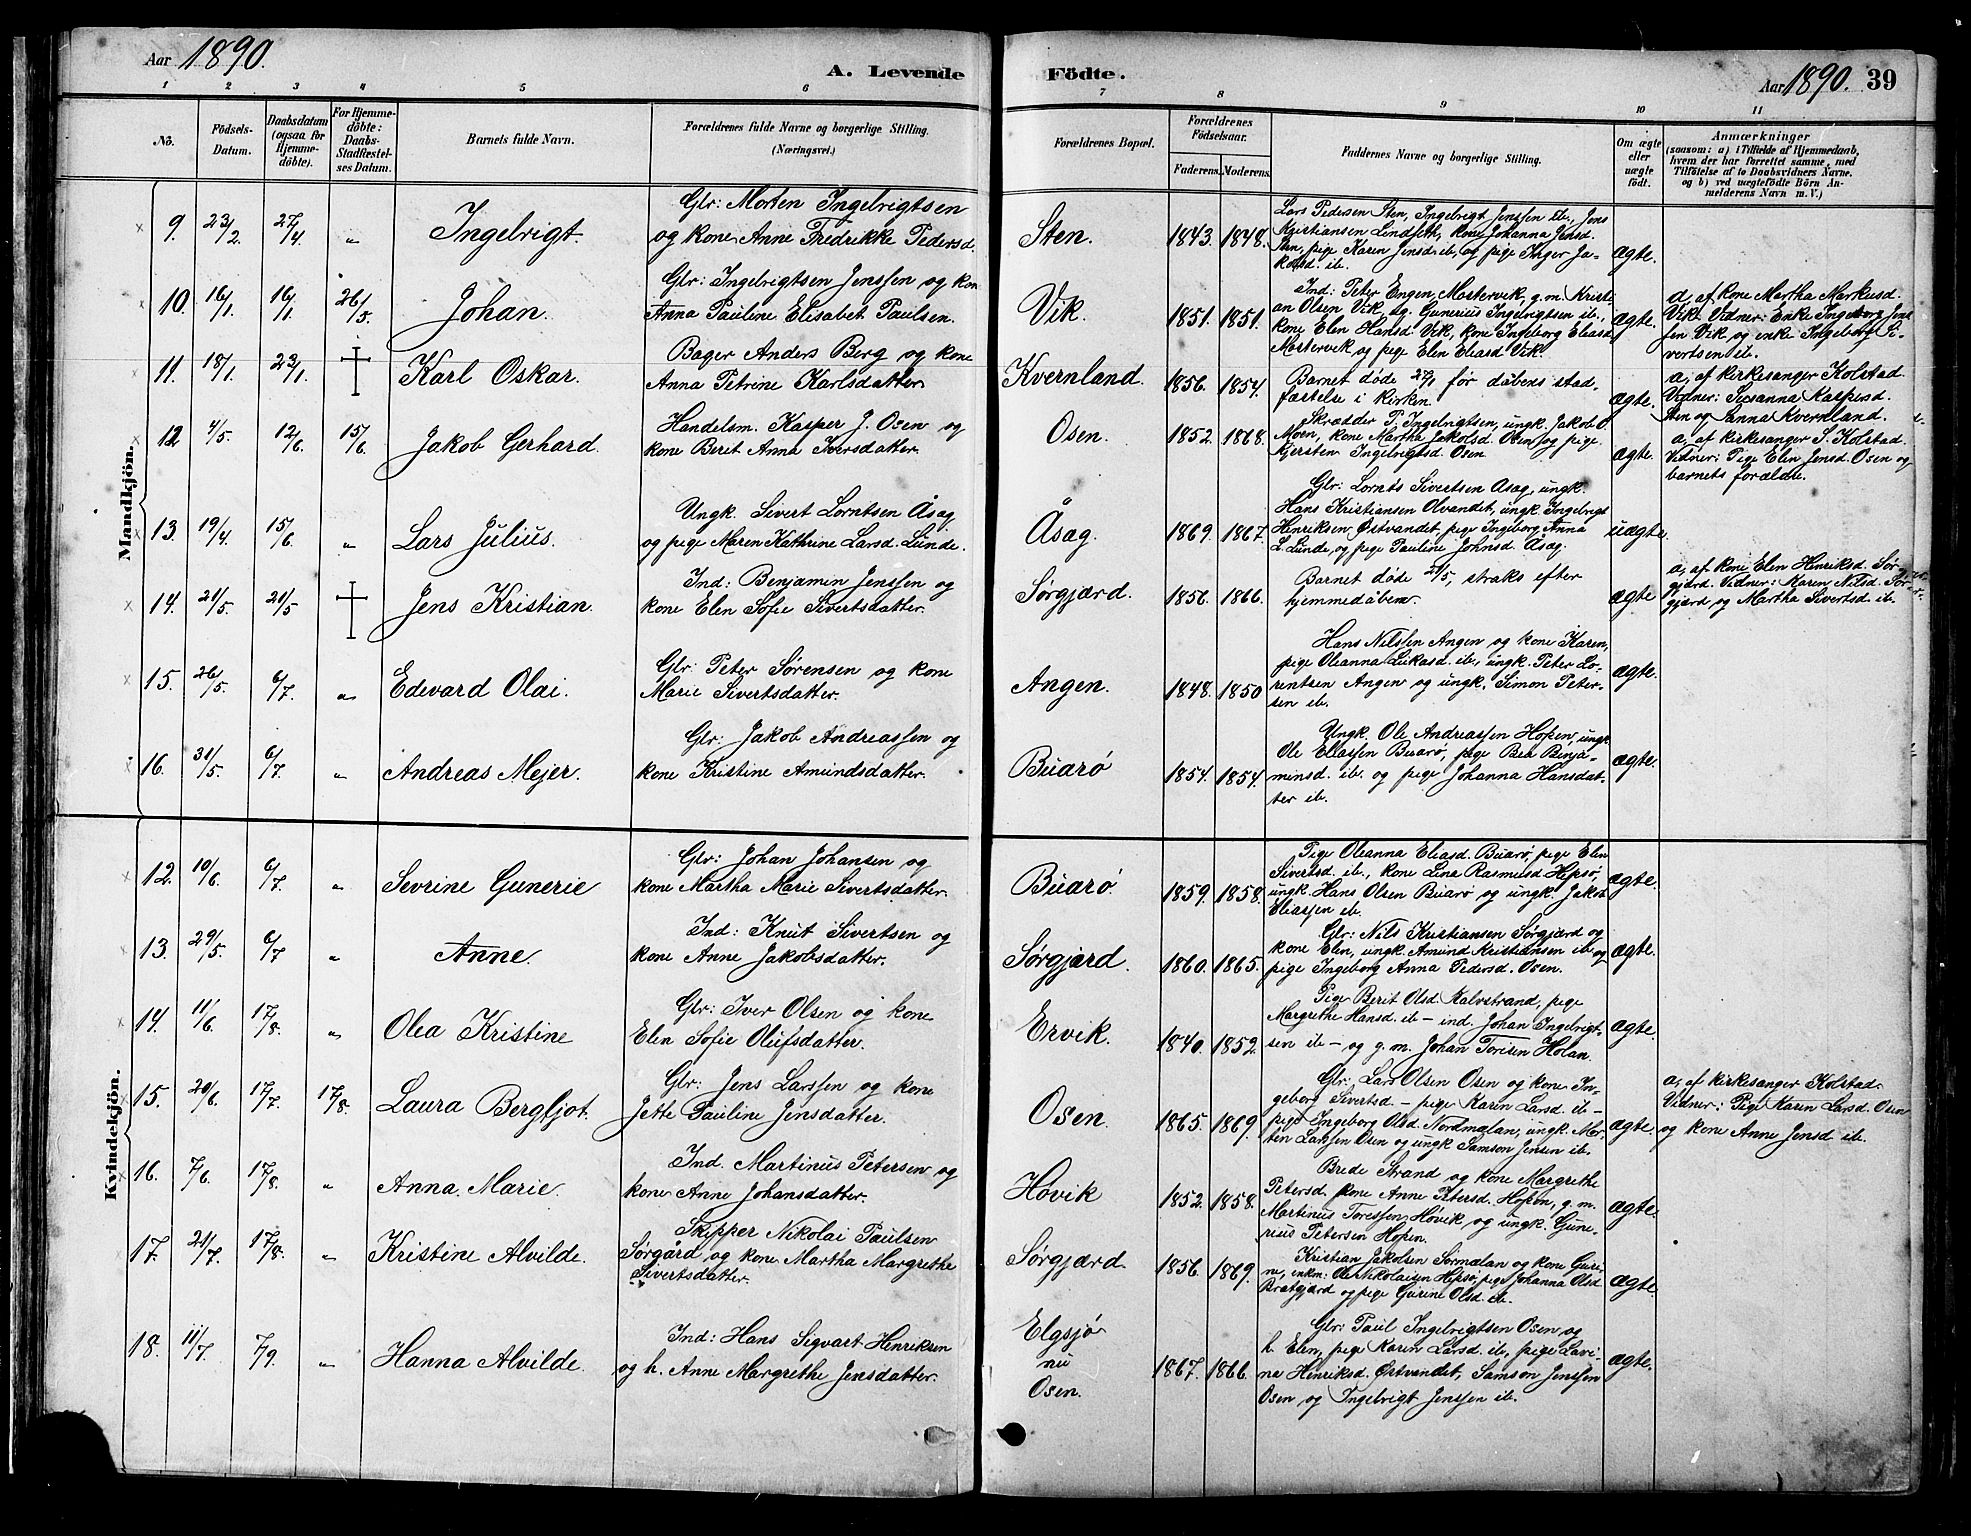 Aar 1890.
A. Levende Födte.
Aar 1890. 39
1 2 3 4 5 6 7 8 9 10 11
No.
Födsels-
Datum.
Daabsdatum
(ogsaa for
Hjemme-
döbte).
For Hjemme-
döbte:
Daabs-
Stadfæstel-
ses Datum.
Barnets fulde Navn.
Forældrenes fulde Navne og borgerlige Stilling.
(Næringsvei.)
Forældrenes Bopæl.
Forældrenes
Födselsaar.
Faderens. Moderens.
Faddernes Navne og borgerlige Stilling.
Om ægte
eller
uægte
födt.
Anmærkninger
(saasom: a) i Tilfælde af Hjemmedaab,
hvem der har forrettet samme, med
Tilföielse af to Daabsvidners Navne.
og b) ved uægtefödte Börn An-
melderens Navn m. V.)
Mandkjön.
9. 23/2. 27/4 „ Ingebrigt.
Glr: Morten Ingebrigtsen
og kone Anne Fredrikke Pedersd.
Sten. 1843. 1848.
Lars Pedersen Sten, Ingebrigt Jenssen ib., Jens
Kristiansen Lindseth, kone Johanna Jensd.
Sten, pige Karen Jensd. ib. og pige Inger Ja-
kobsd. ib.
ægte.
10. 16/1. 16/1. 26/5. Johan.
Glr: Ingebrigtsen Jenssen og kone
Anna Pauline Elisabet Paulsen.
Vik. 1851. 1851.
Ind: Peter Engen, Mostervik, g.m. Krist-
an Olsen Vik, sg. Gunerius Ingebrigtsen ib.,
kone Elen Hansd. Vik, kone Ingeborg Eliasd.
Mostervik og pige Elen Eliasd Vik.
ægte.
a, af kone Martha Markusd.
Vik. Vidner: Enke Ingeborg Jens-
sen Vik og enke Ingeborg Si-
vertsen ib.
11. 18/1. 23/1. † Karl Oskar.
Bager Anders Berg og kone
Anna Petrine Karlsdatter.
Kvernland. 1856. 1854.
Barnet döde 27/1 för dåbens stad-
fæstelse i kirken.
ægte.
a, af kirkesanger Kolstad.
Vidner: Susanna Kaspersd.
Sten og Sanna Kvernland.
12 4/5. 12/6. 15/6. Jakob Gerhard.
Handelsm. Kasper J. Osen og
kone Berit Anna Iversdatter.
Osen. 1852. 1868.
Skrædder P. Ingebrigtsen, ungk. Jakob O.
Moen, kone Martha Jakobsd. Osen og pige
Kjersten Ingebrigtsd. Osen.
ægte.
a, af kirkesanger S. Kolstad.
Vidner: Pige Elen Jensd. Osen og
barnets forældre.
13. 19/4. 15/6. „ Lars Julius.
Ungk. Sivert Lorntsen Åsag
og pige Maren Kathrine Larsd. Lunde.
Åsag. 1869. 1867.
Glr: Lornts Sivertsen Åsag, ungk.
Hans Kristiansen Olvandet, ungk. Ingebrigt
Henriksen Østvandet, pige Ingeborg Anna
L. Lunde, og pige Pauline Johnsd. Åsag.
uægte.
14. 21/5. 21/5 † Jens Kristian.
Ind: Benjamin Jenssen og
kone Elen Sofie Sivertsdatter.
Sørgjærd. 1856. 1866.
Barnet döde 21/5, straks efter
hjemmedåben.
ægte
a, af kone Elen Henriksd. Sör-
gjærd. Vidner: Karen Nilsd. Sör-
gjærd og Martha Sivertsd. ib.
15. 26/5. 6/7. „ Edevard Olai.
Glr: Peter Sørensen og kone
Marie Sivertsdatter.
Angen. 1848. 1850
Hans Nilssen Angen og kone Karen,
pige Oleanna Lukasd. ib., ungk. Peter Lo-
rentsen Angen og ungk. Simon Peter-
sen ib.
ægte.
16. 31/5. 6/7. „ Andreas Mejer.
Glr: Jakob Andreassen og
kone Kristine Amundsdatter.
Buarø 1854. 1854.
Ungk. Ole Andreassen Hopen, ungk.
Ole Eliassen Buarø, pige Bea Benja-
minsd. ib. og pige Johanna Hansdat-
ter ib.
ægte.
Kvindekjön.
12. 10/6. 6/7. „ Sevrine Gunerie
Glr: Johan Johansen og
kone Martha Marie Sivertsdatter.
Buarø. 1859. 1858.
Pige Oleanna Eliasd. Buarø, pige Elen
Sivertsd. ib., kone Lina Rasmusd. Hepsø,
ungk. Hans Olsen Buarø og ungk. Jakob
Eliassen ib.
ægte.
13. 29/5. 6/7 „ Anne.
Ind: Knut Sivertsen og
kone Anne Jakobsdatter.
Sørgjærd. 1860. 1865.
Glr: Nils Kristiansen Sørgjærd og
kone Elen, ungk. Amund Kristiansen ib. og
pige Ingeborg Anna Pedersd. Osen.
ægte.
14. 11/6. 17/8. „ Olea Kristine
Glr: Iver Olsen og kone
Elen Sofie Olufsdatter.
Ervik. 1840. 1852.
Pige Berit Olsd. Kalvstrand, pige
Margrethe Hansd. ib – ind. Johan Ingebrigt-
sen ib – og g.m. Johan Torisen Holan.
ægte.
15. 20/6. 17/7. 17/8. Laura Bergljot.
Glr: Jens Larssen og kone
Jette Pauline Jensdatter.
Osen. 1865. 1869.
Glr: Lars Olsen Osen og kone In-
geborg Sivertsd – pige Karen Larsd. ib –
pige Ingeborg Olsd. Nordmælan, ungk. Mor-
ten Larssen Osen og ungk Samson Jensen ib.
ægte.
a, af kirkesanger Kolstad.
Vidner: Pige Karen Larsd. Osen
og kone Anne Jensd ib.
16. 7/6. 17/8. „ Anna Marie.
Ind. Martinus Petersen og
kone Anne Johansdatter.
Hovik 1852. 1858.
Brede Strand og kone Margrethe
Petersd. kone Anne Petersd. Hopen, g.m.
Martinus Toressen Hovik og ungk. Gune-
rius Petersen Hopen.
ægte.
17. 21/7. 17/8. „ Kristine Alvilde.
Skipper Nikolai Paulsen
Sørgård og kone Martha Margrethe
Sivertsdatter.
Sørgjærd. 1856. 1869.
Kristian Jakobsen Sørmælan og kone Guri-
ne, enkm: Ole Nikolaisen Hepsø, pige Johanna Olsd
Bratgjærd og pige Gurine Olsd. ib.
ægte.
18. 11/7. 7/9. „ Hanna Alvilde.
Ind: Hans Sigvart Henriksen
og h. Anne Margrethe Jensdatter.
Elgsjø
nu
Osen. 1867. 1866.
Glr: Paul Ingebrigtsen Osen og
h. Elen, pige Karen Larsd. ib, pige Lavi-
na Henriksd. Østvandet, Samson Jenssen
Osen og Ingebrigt Jenssen ib.
ægte.